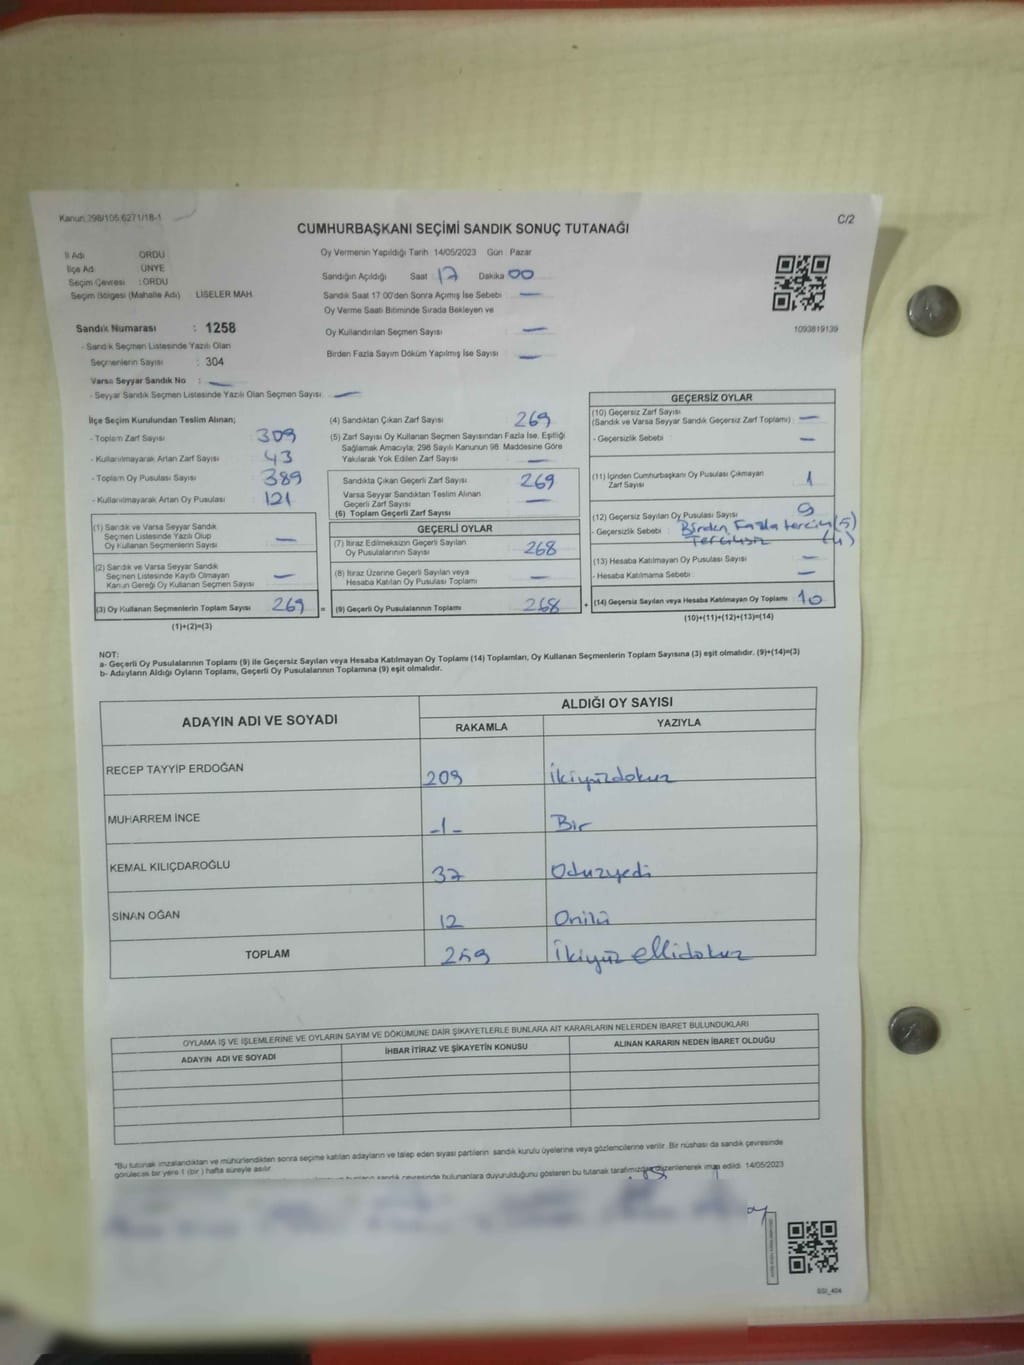 Kanun:298/105,6271/18-1
C/2
CUMHURBAŞKANI SEÇİMİ SANDIK SONUÇ TUTANAĞI
İl Adı ORDU
İlçe Adı ÜNYE
Seçim Çevresi : ORDU
Seçim Bölgesi (Mahalle Adı) LİSELER MAH.
Sandık Numarası : 1258
- Sandık Seçmen Listesinde Yazılı Olan
Seçmenlerin Sayısı : 304
Varsa Seyyar Sandık No : —
- Seyyar Sandık Seçmen Listesinde Yazılı Olan Seçmen Sayısı —
Oy Vermenin Yapıldığı Tarih :14/05/2023 Gün Pazar
Sandığın Açıldığı Saat 17 Dakika 00
Sandık Saat 17:00'den Sonra Açımış İse Sebebi : —
Oy Verme Saati Bitiminde Sırada Bekleyen ve
Oy Kullandırılan Seçmen Sayısı —
Birden Fazla Sayım Döküm Yapılmış İse Sayısı : —
1093819139
İlçe Seçim Kurulundan Teslim Alınan;
- Toplam Zarf Sayısı 309
- Kullanılmayarak Artan Zarf Sayısı 43
- Toplam Oy Pusulası Sayısı 389
- Kullanılmayarak Artan Oy Pusulası 121
(1) Sandık ve Varsa Seyyar Sandık
Seçmen Listesinde Yazılı Olup
Oy Kullanan Seçmenlerin Sayısı —
(2) Sandık ve Varsa Seyyar Sandık
Seçmen Listesinde Kayıtlı Olmayan
Kanun Gereği Oy Kullanan Seçmen Sayısı —
(3) Oy Kullanan Seçmenlerin Toplam Sayısı 269
(1)+(2)=(3)
(4) Sandıktan Çıkan Zarf Sayısı 269
(5) Zarf Sayısı Oy Kullanan Seçmen Sayısından Fazla İse, Eşitliği
Sağlamak Amacıyla; 298 Sayılı Kanunun 98. Maddesine Göre
Yakılarak Yok Edilen Zarf Sayısı —
Sandıkta Çıkan Geçerli Zarf Sayısı 269
Varsa Seyyar Sandıktan Teslim Alınan
Geçerli Zarf Sayısı —
(6) Toplam Geçerli Zarf Sayısı
GEÇERLİ OYLAR
(7) İtiraz Edilmeksizin Geçerli Sayılan
Oy Pusulalarının Sayısı 268
(8) İtiraz Üzerine Geçerli Sayılan veya
Hesaba Katılan Oy Pusulası Toplamı —
= (9) Geçerli Oy Pusulalarının Toplamı 268
GEÇERSİZ OYLAR
(10) Geçersiz Zarf Sayısı
(Sandık ve Varsa Seyyar Sandık Geçersiz Zarf Toplamı) : —
- Geçersizlik Sebebi : —
(11) İçinden Cumhurbaşkanı Oy Pusulası Çıkmayan
Zarf Sayısı 1
(12) Geçersiz Sayılan Oy Pusulası Sayısı 9
- Geçersizlik Sebebi : Birden Fazla tercih (5)
Tercihsiz (4)
(13) Hesaba Katılmayan Oy Pusulası Sayısı : —
- Hesaba Katılmama Sebebi : —
+ (14) Geçersiz Sayılan veya Hesaba Katılmayan Oy Toplamı : 10
(10)+(11)+(12)+(13)=(14)
NOT:
a- Geçerli Oy Pusulalarının Toplamı (9) ile Geçersiz Sayılan veya Hesaba Katılmayan Oy Toplamı (14) Toplamları, Oy Kullanan Seçmenlerin Toplam Sayısına (3) eşit olmalıdır. (9)+(14)=(3)
b- Adayların Aldığı Oyların Toplamı, Geçerli Oy Pusulalarının Toplamına (9) eşit olmalıdır.
ADAYIN ADI VE SOYADI
ALDIĞI OY SAYISI
RAKAMLA YAZIYLA
RECEP TAYYİP ERDOĞAN 209 İkiyüzdokuz
MUHARREM İNCE -1- Bir
KEMAL KILIÇDAROĞLU 37 Oduzyedi
SİNAN OĞAN 12 Oniki
TOPLAM 259 İkiyüz ellidokuz
OYLAMA İŞ VE İŞLEMLERİNE VE OYLARIN SAYIM VE DÖKÜMÜNE DAİR ŞİKAYETLERLE BUNLARA AİT KARARLARIN NELERDEN İBARET BULUNDUKLARI
ADAYIN ADI VE SOYADI İHBAR İTİRAZ VE ŞİKAYETİN KONUSU ALINAN KARARIN NEDEN İBARET OLDUĞU
*Bu tutanak imzalandıktan ve mühürlendikten sonra seçime katılan adayların ve talep eden siyasi partilerin sandık kurulu üyelerine veya gözlemcilerine verilir. Bir nüshası da sandık çevresinde
görülecek bir yere 1 (bir ) hafta süreyle asılır.
sandık çevresinde bulunanlara duyurulduğunu gösteren bu tutanak tarafımızdan düzenlenerek imza edildi. 14/05/2023